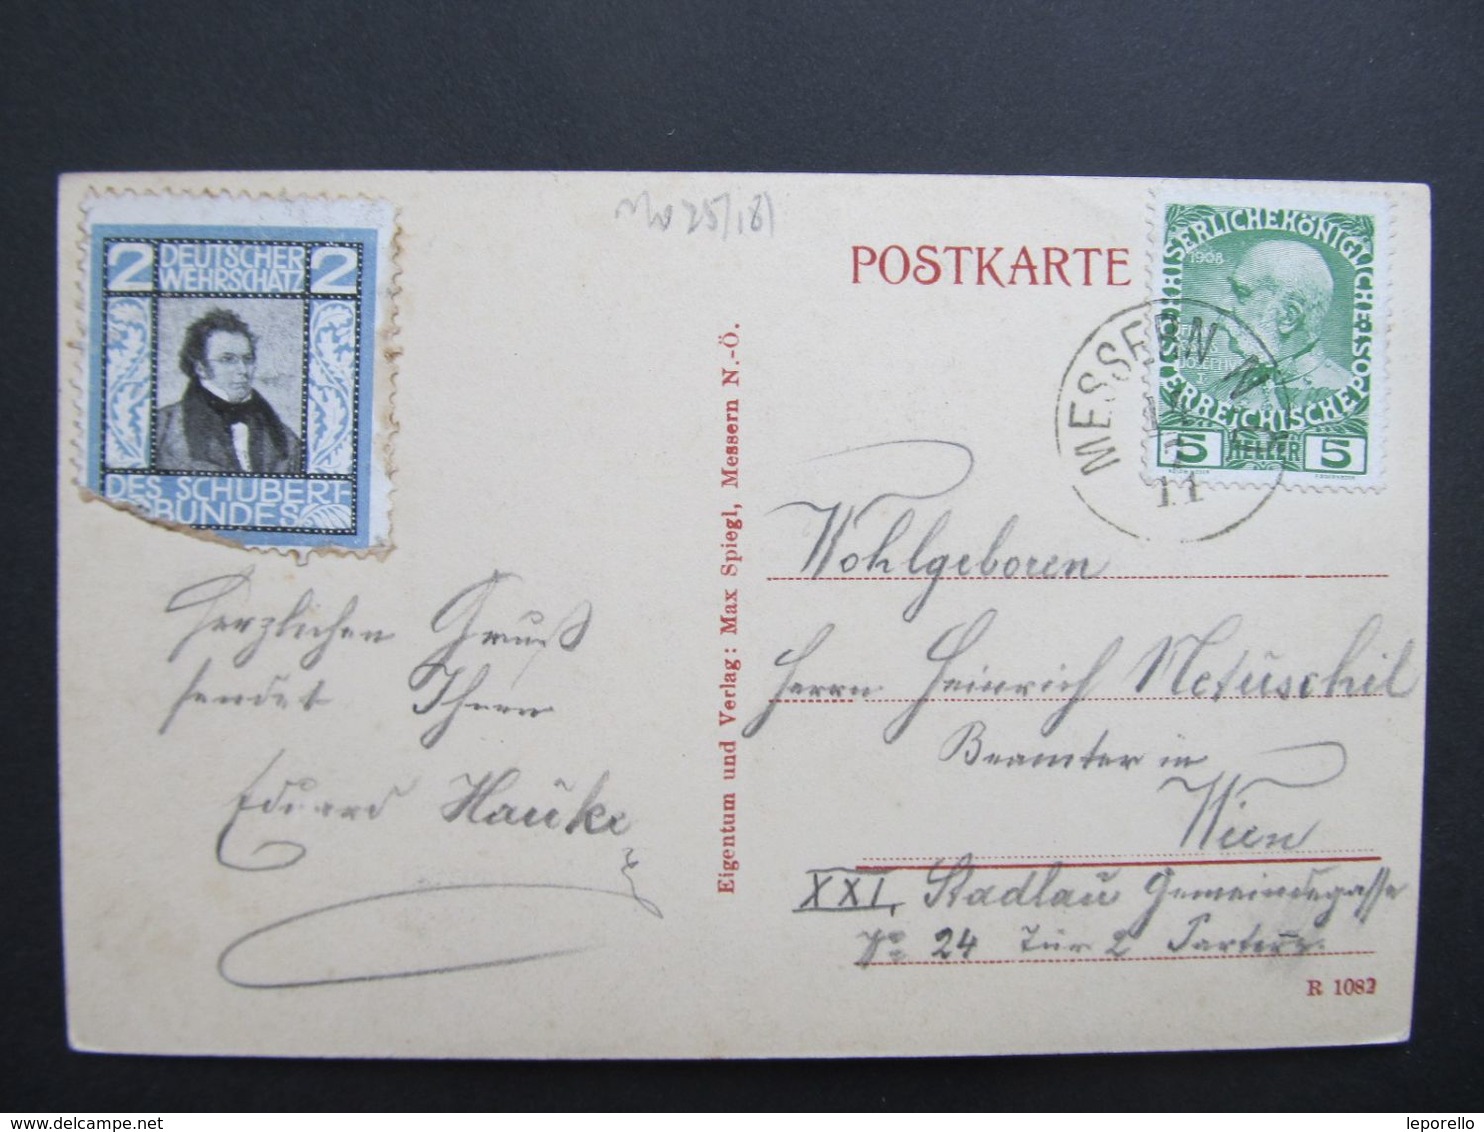 No 25/181
POSTKARTE
2 DEUTSCHER 2
WEHRSCHATZ
DES SCHUBERT-
BUNDES
KAISERLICHE KÖNIGLICHE ÖSTERREICHISCHE POST
1908
FRANZ
JOSEPH
I
5 HELLER 5
MESSERN N
11
Eigentum und Verlag: Max Spiegl, Messern N.-Ö.
Herzlichen Gruß
sendet Ihnen
Eduard Hauke
Wohlgeboren
Herrn Heinrich Netuschil
Beamter in
Wien
XXI, Stadlau Gemeindegasse
No 24 Tür 2 Parterre.
R 1082
leporello